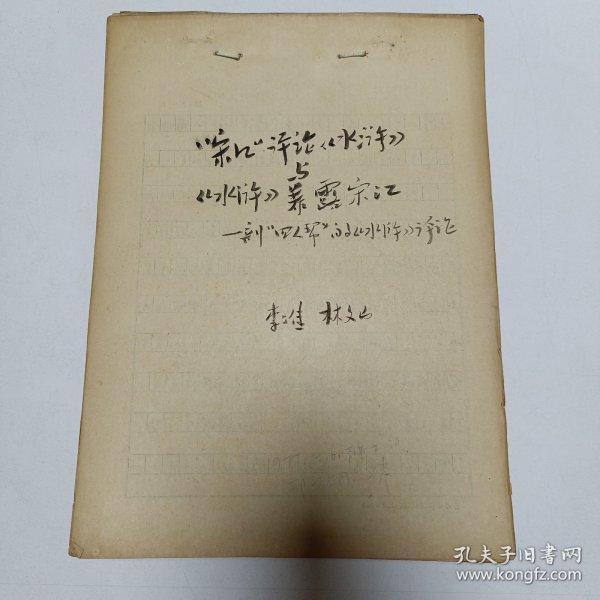 “宋江”评论《水浒》
与
《水浒》暴露宋江
—剖“四人帮”的《水浒》评论
李佳 林文山
孔夫子旧书网
www.kongfz.com